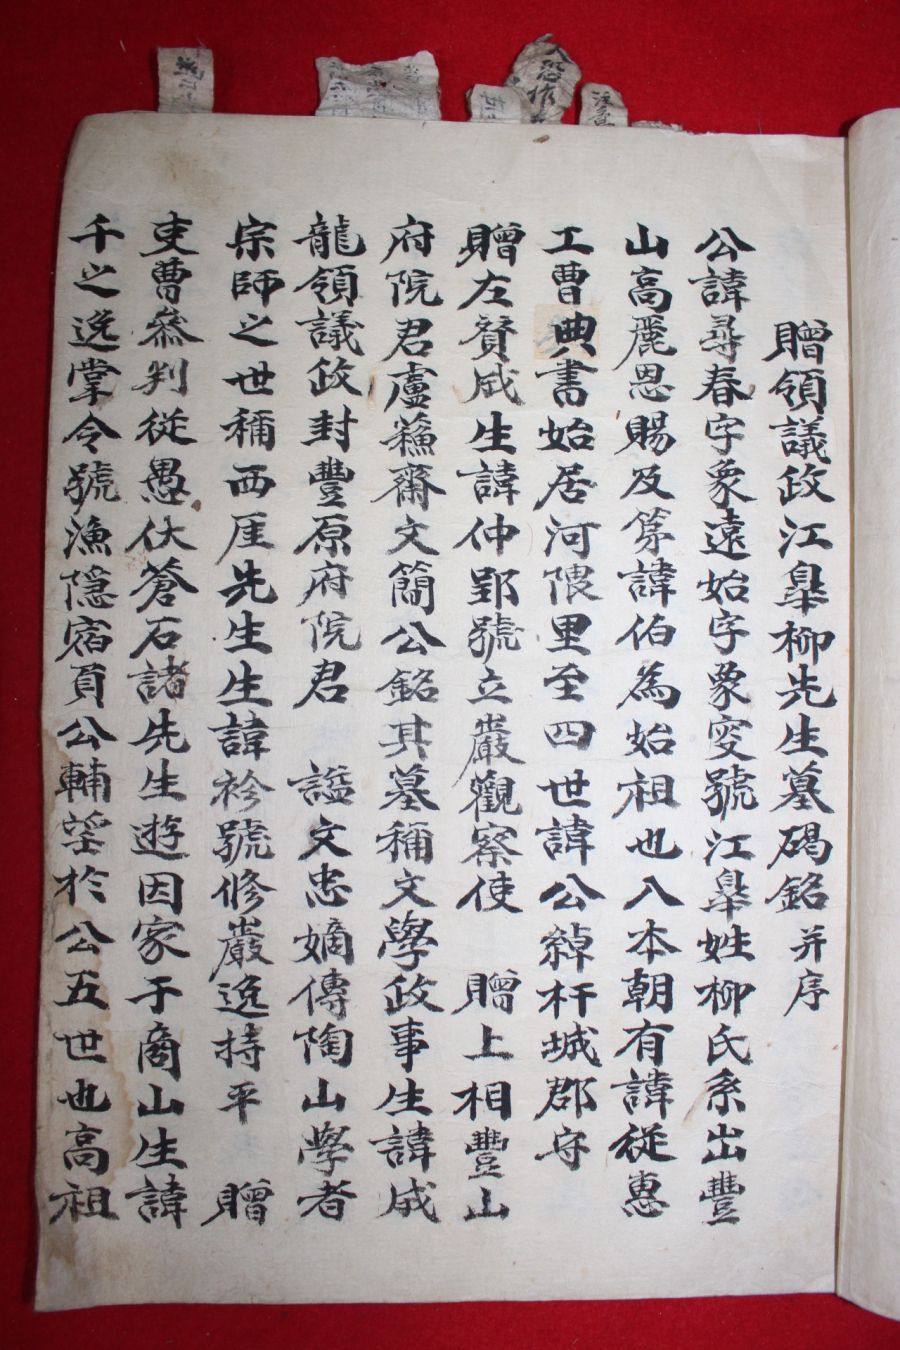 贈領議政江皐柳先生墓碣銘 并序
公諱尋春字象遠始字象叜號江皐姓柳氏系出豐
山高麗恩賜及第諱伯為始祖也入本朝有諱從惠
工曹典書始居河隈里至四世諱公綽杆城郡守
贈左贊成生諱仲郢號立巖觀察使 贈上相豐山
府院君盧蘓齋文簡公銘其墓稱文學政事生諱成
龍領議政封豐原府院君 謚文忠嫡傳陶山學者
宗師之世稱西厓先生生諱袗號修巖逸持平 贈
吏曹叅判從愚伏蒼石諸先生遊因家于商山生諱
千之逸掌令號漁隱宿負公輔望於公五世也高祖